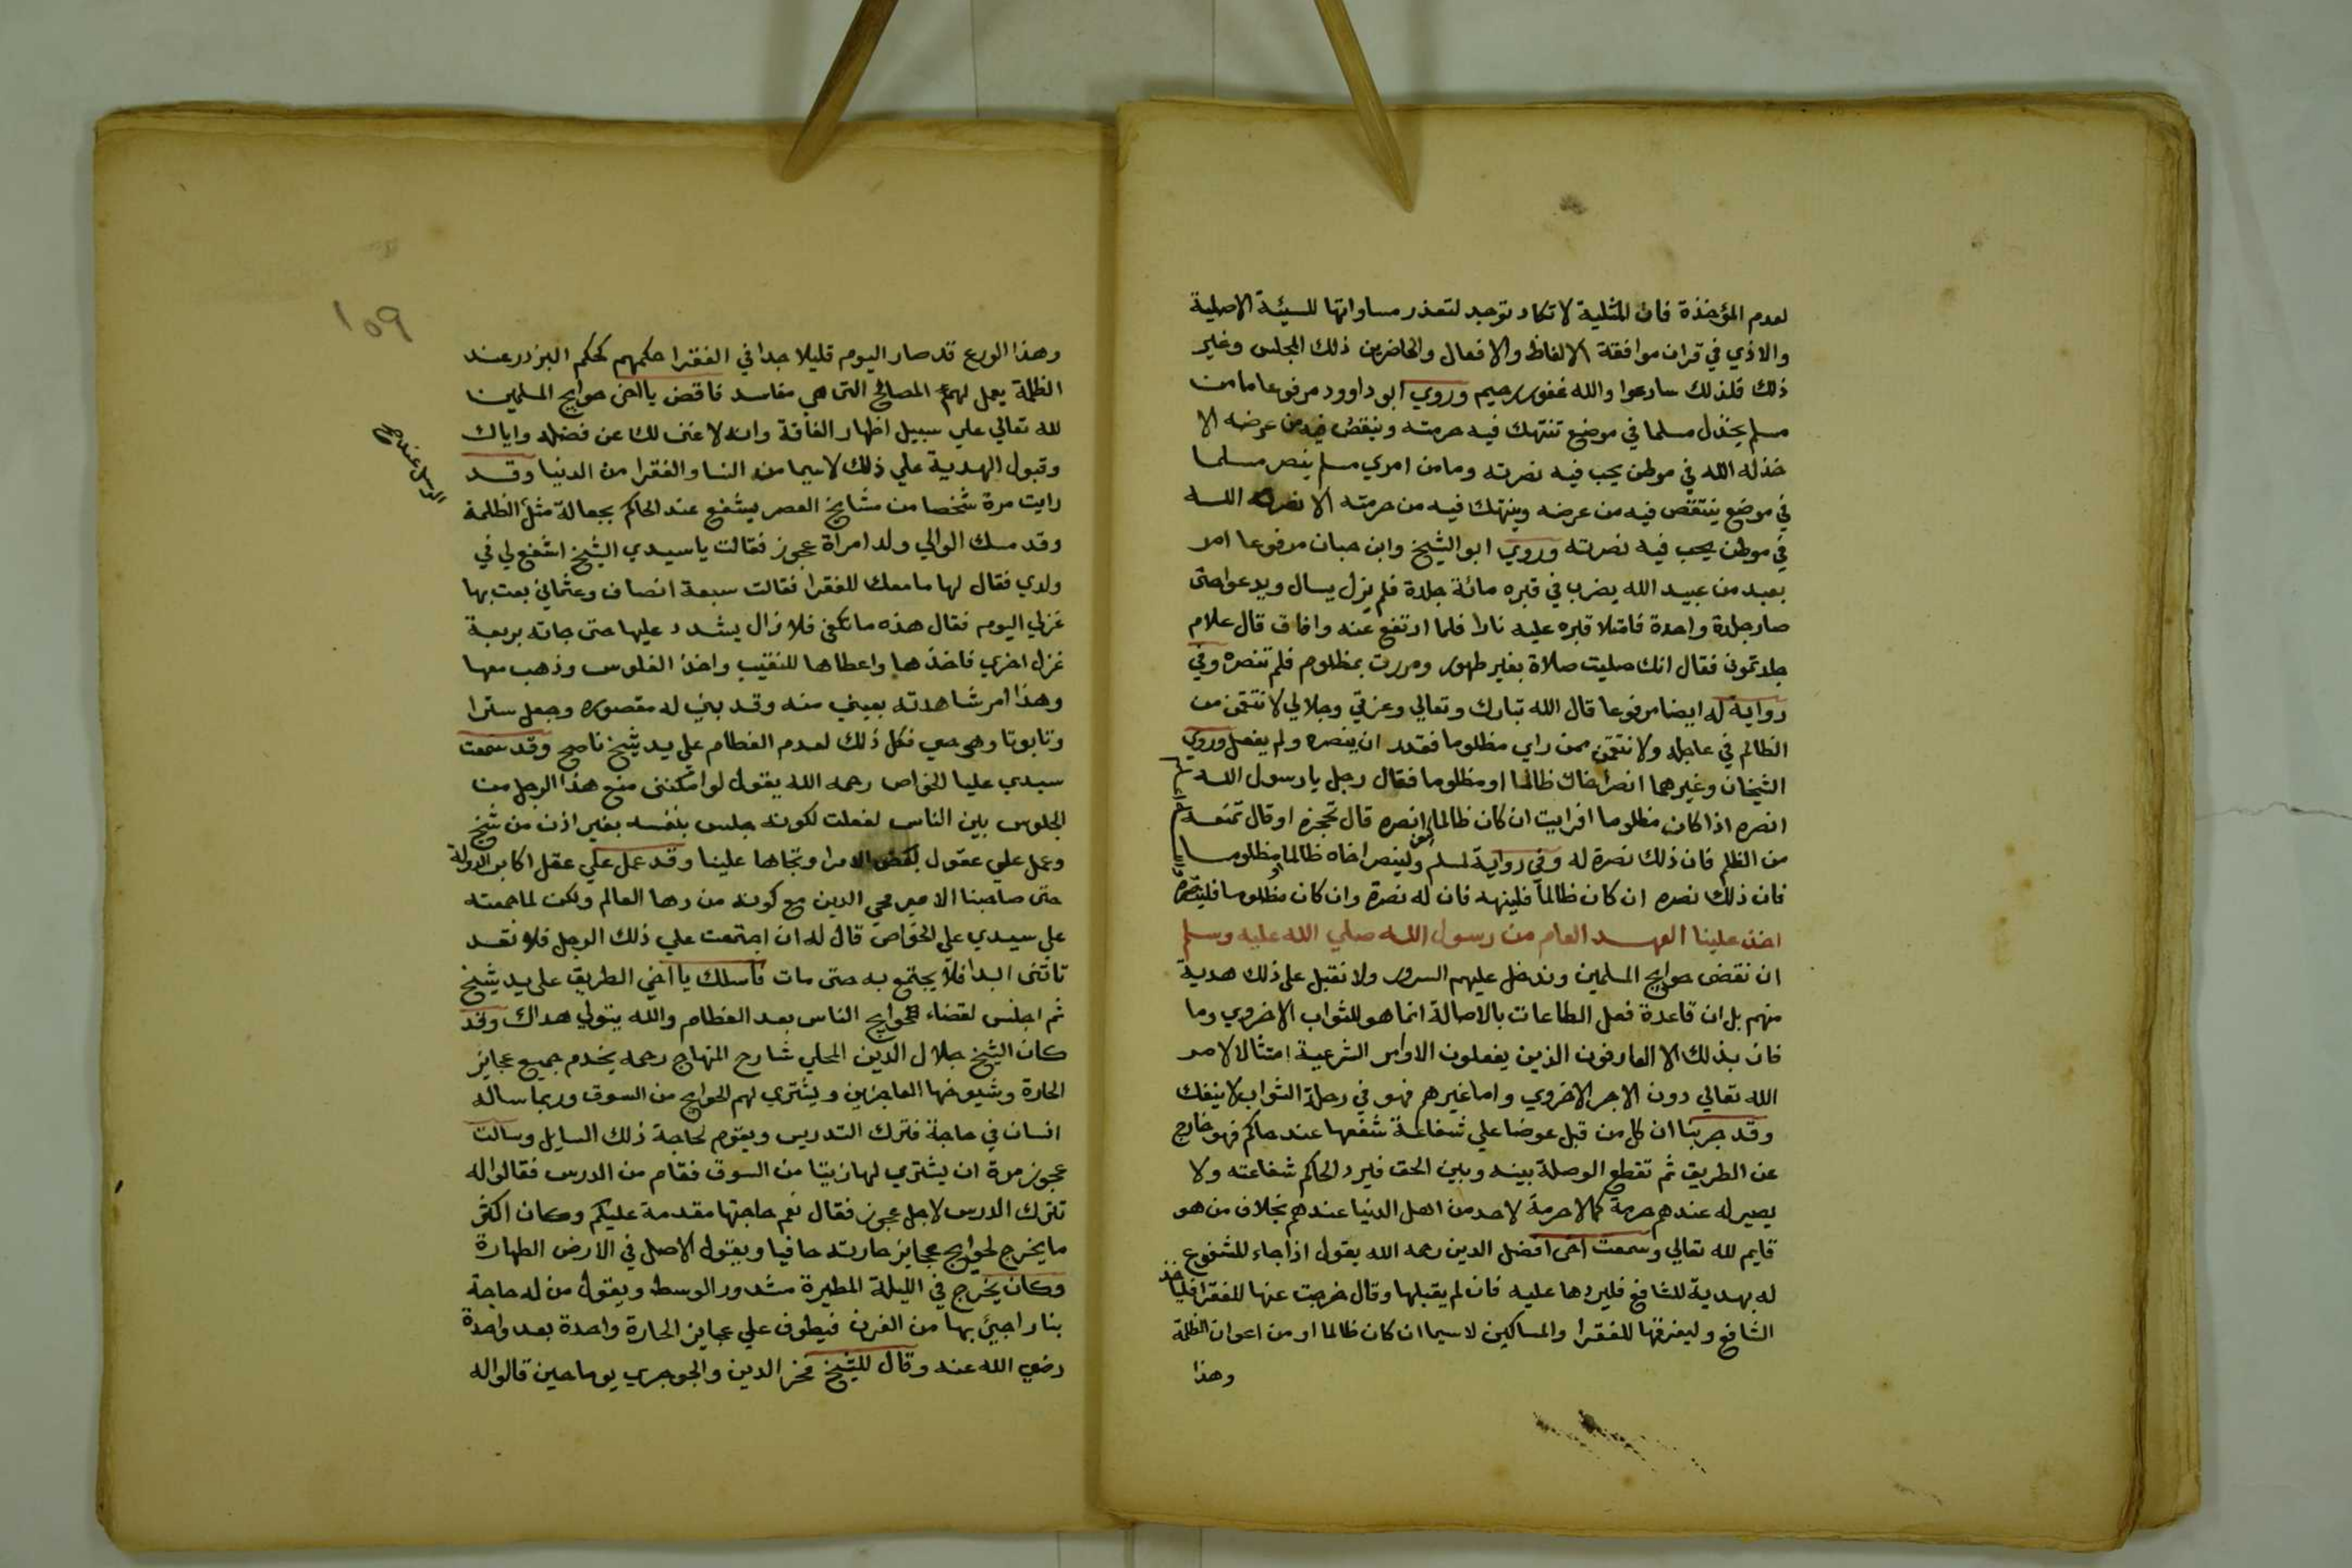 لعدم المؤخذة فان المثلية لا تكاد توجد لتعذر مساواتها للسيئة الاصلية
والاذي في قران موافقة الالفاظ والافعال والحاضرين ذلك المجلس وغير
ذلك فلذلك سارعوا والله غفور رحيم وروي ابو داوود مرفوعا ما من
مسلم يخذل مسلما في موضع تنتهك فيه حرمته وينتقص فيه من عرضه الا
خذله الله في موطن يحب فيه نصرته وما من امري مسلم ينصر مسلما
في موضع ينتقص فيه من عرضه وينتهك فيه من حرمته الا نصره الله
في موطن يحب فيه نصرته وروي ابو الشيخ وابن حبان مرفوعا امر
بعبد من عبيد الله يضرب في قبره مائة جلدة فلم يزل يسال ويدعوا حتى
صار جلدة واحدة فامتلا قبره عليه نارا فلما ارتفع عنه وافاق قال علام
جلدتمون فقال انك صليت صلاة بغير طهور ومررت بمظلوم فلم تنصره وفي
رواية له ايضا مرفوعا قال الله تبارك وتعالي وعزتي وجلالي لانتقمن من
الظالم في عاجله ولانتقمن ممن راي مظلوما فقدر ان ينصره ولم يفعل وروي
الشيخان وغيرهما انصر اخاك ظالما او مظلوما فقال رجل يا رسول الله
انصره اذا كان مظلوما افرايت ان كان ظالما انصره قال تحجزه او قال تمنعه
من الظلم فان ذلك نصرة له وفي رواية لمسلم ولينصر اخاه ظالما او مظلوما
فان ذلك نصره ان كان ظالما فلينهه فان له نصرة وان كان مظلوما فلينصره
اخذ علينا العهد العام من رسول الله صلي الله عليه وسلم
ان نقضى حوايج المسلمين وندخل عليهم السرور ولا نقبل على ذلك هدية
منهم بل ان قاعدة فعل الطاعات بالاصالة انما هو للثواب الاخروي وما
فان بذلك الا العارفون الذين يفعلون الاوامر الشرعية امتثالا لامر
الله تعالي دون الاجر الاخروي واما غيرهم فهو في رحلة الثواب لا ينفك
وقد جربنا ان كل من قبل عوضا علي شفاعة شفعها عند حاكم فهو خارج
عن الطريق ثم تقطع الوصلة بينه وبين الحق فيرد الحاكم شفاعته ولا
يصير له عندهم حرمة كما لا حرمة لاحد من اهل الدنيا عندهم بخلاف من هو
قايم لله تعالي وسمعت اخى افضل الدين رحمه الله يقول اذا جاء للشفوع
له بهدية للشافع فليردها عليه فان لم يقبلها وقال خرجت عنها للفقرا فلياخذ
الشافع وليفرقها للفقرا والمساكين لاسيما ان كان ظالما او من اعوان الظلمة
وهذا
١٥٩
وهذا الورع قد صار اليوم قليلا جدا في الفقرا حكمهم كحكم البزدر عند
الظلمة يعمل لهم المصالح التى هي مفاسد فاقض يا اخى حوايج المسلمين
لله تعالي علي سبيل اظهار الفاقة وانه لا غنى لك عن فضله واياك
وقبول الهدية علي ذلك لاسيما من النسا والفقرا من الدنيا وقد
رايت مرة شخصا من مشايخ العصر يشفع عند الحاكم بجعالة مثل الظلمة
وقد مسك الوالي ولد امراة عجوز فقالت يا سيدي الشيخ اشفع لي في
ولدي فقال لها ما معك للفقرا فقالت سبعة انصاف وعثماني بعت بها
غزلي اليوم فقال هذه ما تكفى فلا زال يشدد عليها حتى جاته بربعة
غزل اخري فاخذها واعطاها للنقيب واخذ الفلوس وذهب معها
وهذا امر شاهدته بعيني منه وقد بني له مقصوره وجعل سترا
وتابوتا وهو حي فكل ذلك لعدم الفطام علي يد شيخ ناصح وقد سمعت
سيدي عليا الخواص رحمه الله يقول لو امكننى منع هذا الرجل من
الجلوس بين الناس لفعلت لكونه جلس بنفسه بغير اذن من شيخ
وعمل علي عقول بعض الامرا وتجاها علينا وقد عمل علي عقل اكابر الدولة
حتى صاحبنا الامير محي الدين مع كونه من دها العالم ولكن لما جمعته
علي سيدي علي الخواص قال له ان اجتمعت علي ذلك الرجل فلا تعد
تاتنى ابدا فلا يجتمع به حتى مات فاسلك يا اخي الطريق على يد شيخ
ثم اجلس لقضاء حوايج الناس بعد الفطام والله يتولي هداك وقد
كان الشيخ جلال الدين المحلي شارح المنهاج رحمه يخدم جميع عجايز
الحارة وشيوخها العاجزين ويشتري لهم الحوايج من السوق وربما ساله
انسان في حاجة فترك التدريس ويقوم لحاجة ذلك السايل وسالت
عجوز مرة ان يشتري لها زيتا من السوق فقام من الدرس فقالوا له
تترك الدرس لاجل عجوز فقال نعم حاجتها مقدمة عليكم وكان اكثر
ما يخرج لحوايج عجايز حارته حافيا ويقول الاصل في الارض الطهارة
وكان يخرج في الليلة المطيرة مشدود الوسط ويقول من له حاجة
بنار اجيئ بها من الفرن فيطوف علي عجايز الحارة واحدة بعد واحدة
رضي الله عنه وقال للشيخ فخر الدين والجوجري يوما حين قالوا له